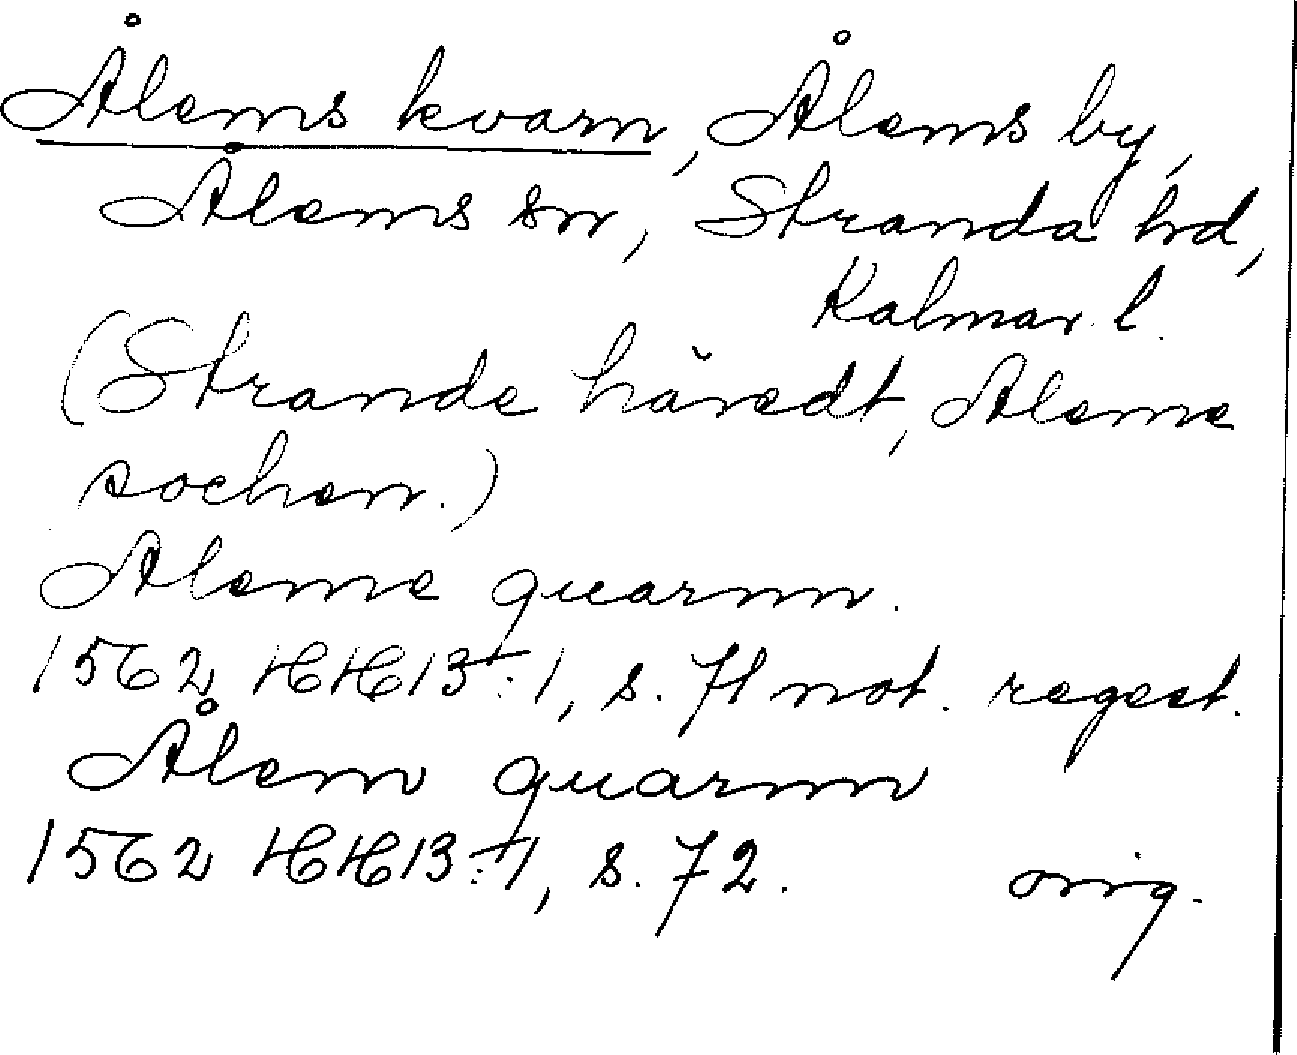 Ålems kvarn, Ålems by,
Ålems sn, Stranda hd,
Kalmar l.
(Strande häredt, Aleme
sochen.)
Aleme quarnn.
1562 HH13:1, s. 71 not. regest.
Ålem quarnn
1562 HH13:1, s. 72. orig.